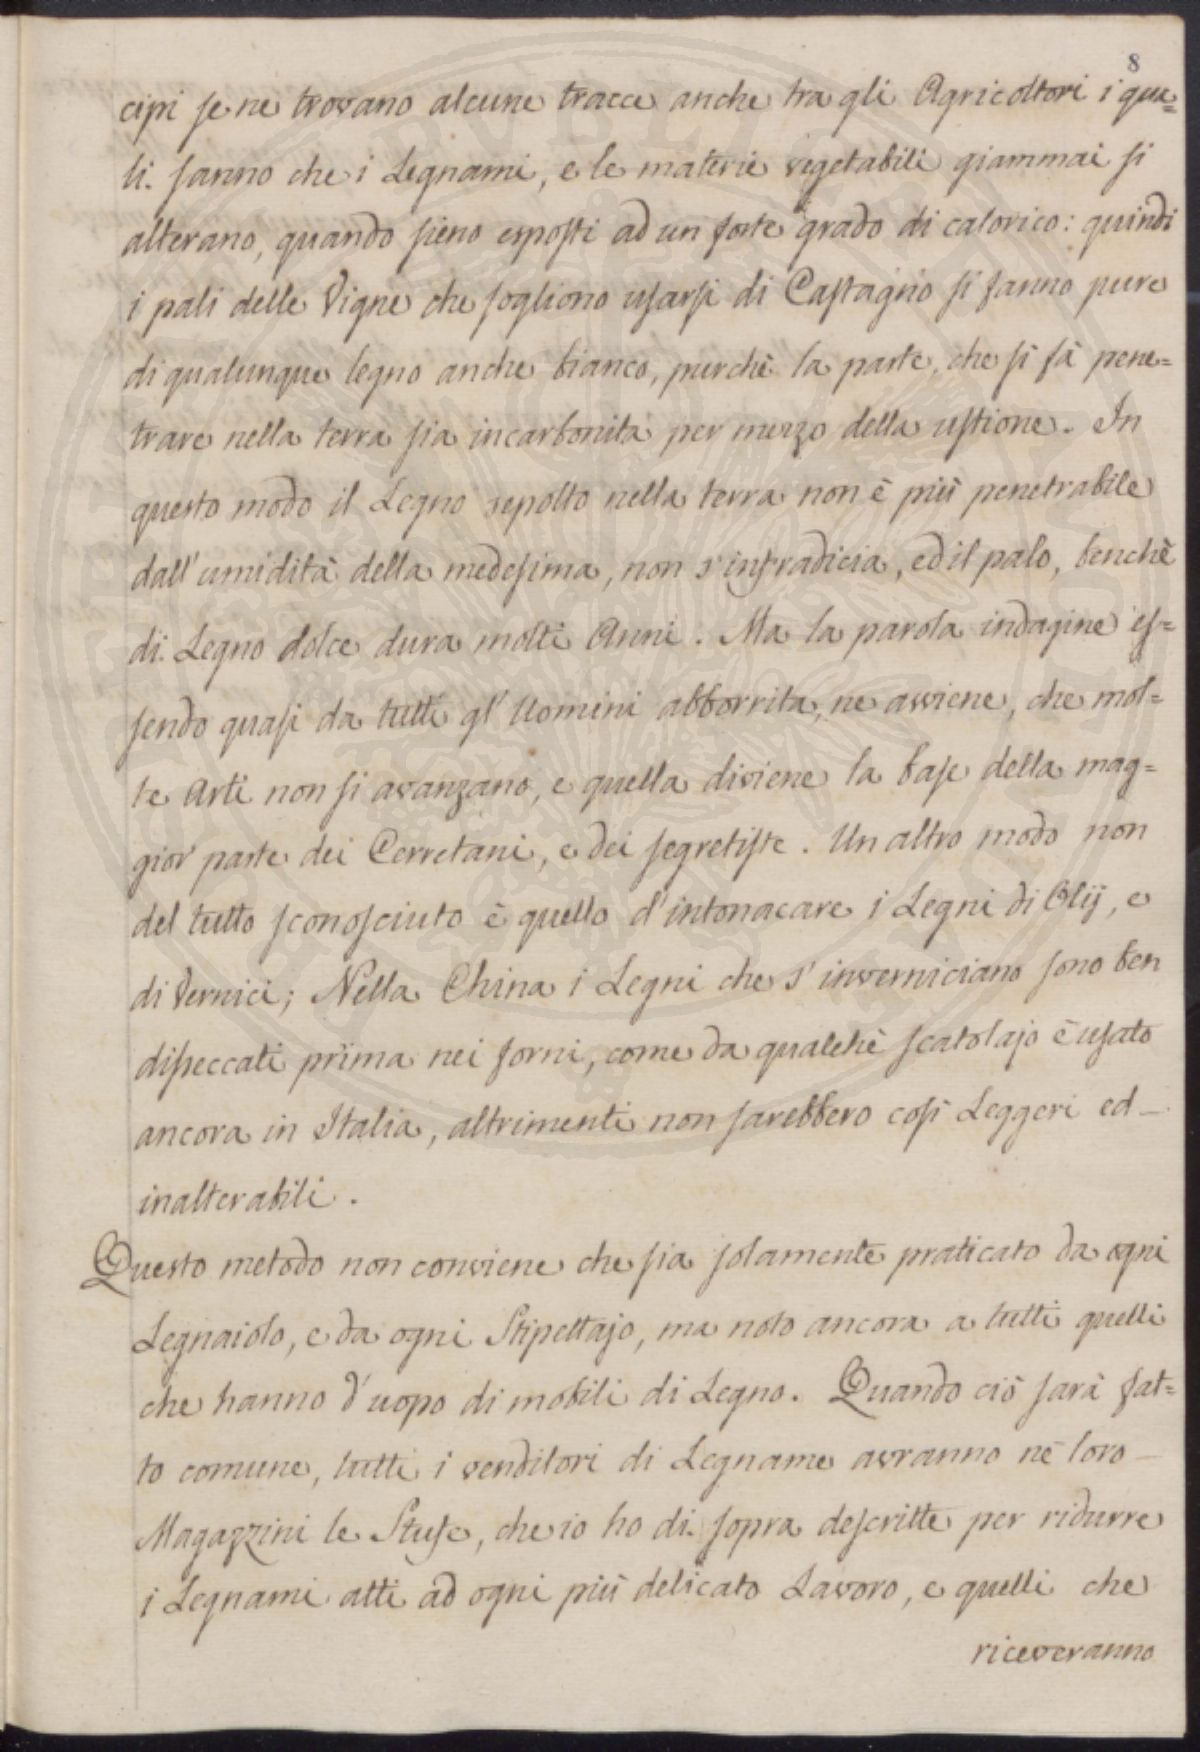 8
cipi se ne trovano alcune tracce anche tra gli Agricoltori i qua=
li. sanno che i Legnami, e le materie vegetabili giammai si
alterano, quando sieno esposti ad un forte grado di calorico: quindi
i pali delle Vigne che sogliono usarsi di Castagno si fanno pure
di qualunque legno anche bianco, purchè la parte, che si fà pene=
trare nella terra sia incarbonita per mezzo della ustione. In
questo modo il Legno sepolto nella terra non è più penetrabile
dall' umidità della medesima, non s'infradicia, ed il palo, benchè
di Legno dolce dura molti Anni. Ma la parola indagine es=
sendo quasi da tutti gl' Uomini abborrita, ne avviene, che mol=
te Arti non si avanzano, e quella diviene la base della mag=
gior parte dei Cerretani, e dei segretiste. Un altro modo non
del tutto sconosciuto è quello d'intonacare i Legni di Olij, e
di Vernici; Nella China i Legni che s' inverniciano sono ben
disseccati prima nei forni, come da qualchè scatolajo è usato
ancora in Italia, altrimenti non sarebbero così Leggeri ed
inalterabili.
Questo metodo non conviene che sia solamente praticato da ogni
Legnaiolo, e da ogni Stipettajo, ma noto ancora a tutti quelli
che hanno d'uopo di mobili di Legno. Quando ciò sarà fat=
to comune, tutti i venditori di Legname avranno ne loro
Magazzini le Stufe, che io ho di sopra descritte per ridurre
i Legnami atti ad ogni più delicato Lavoro, e quelli che
riceveranno